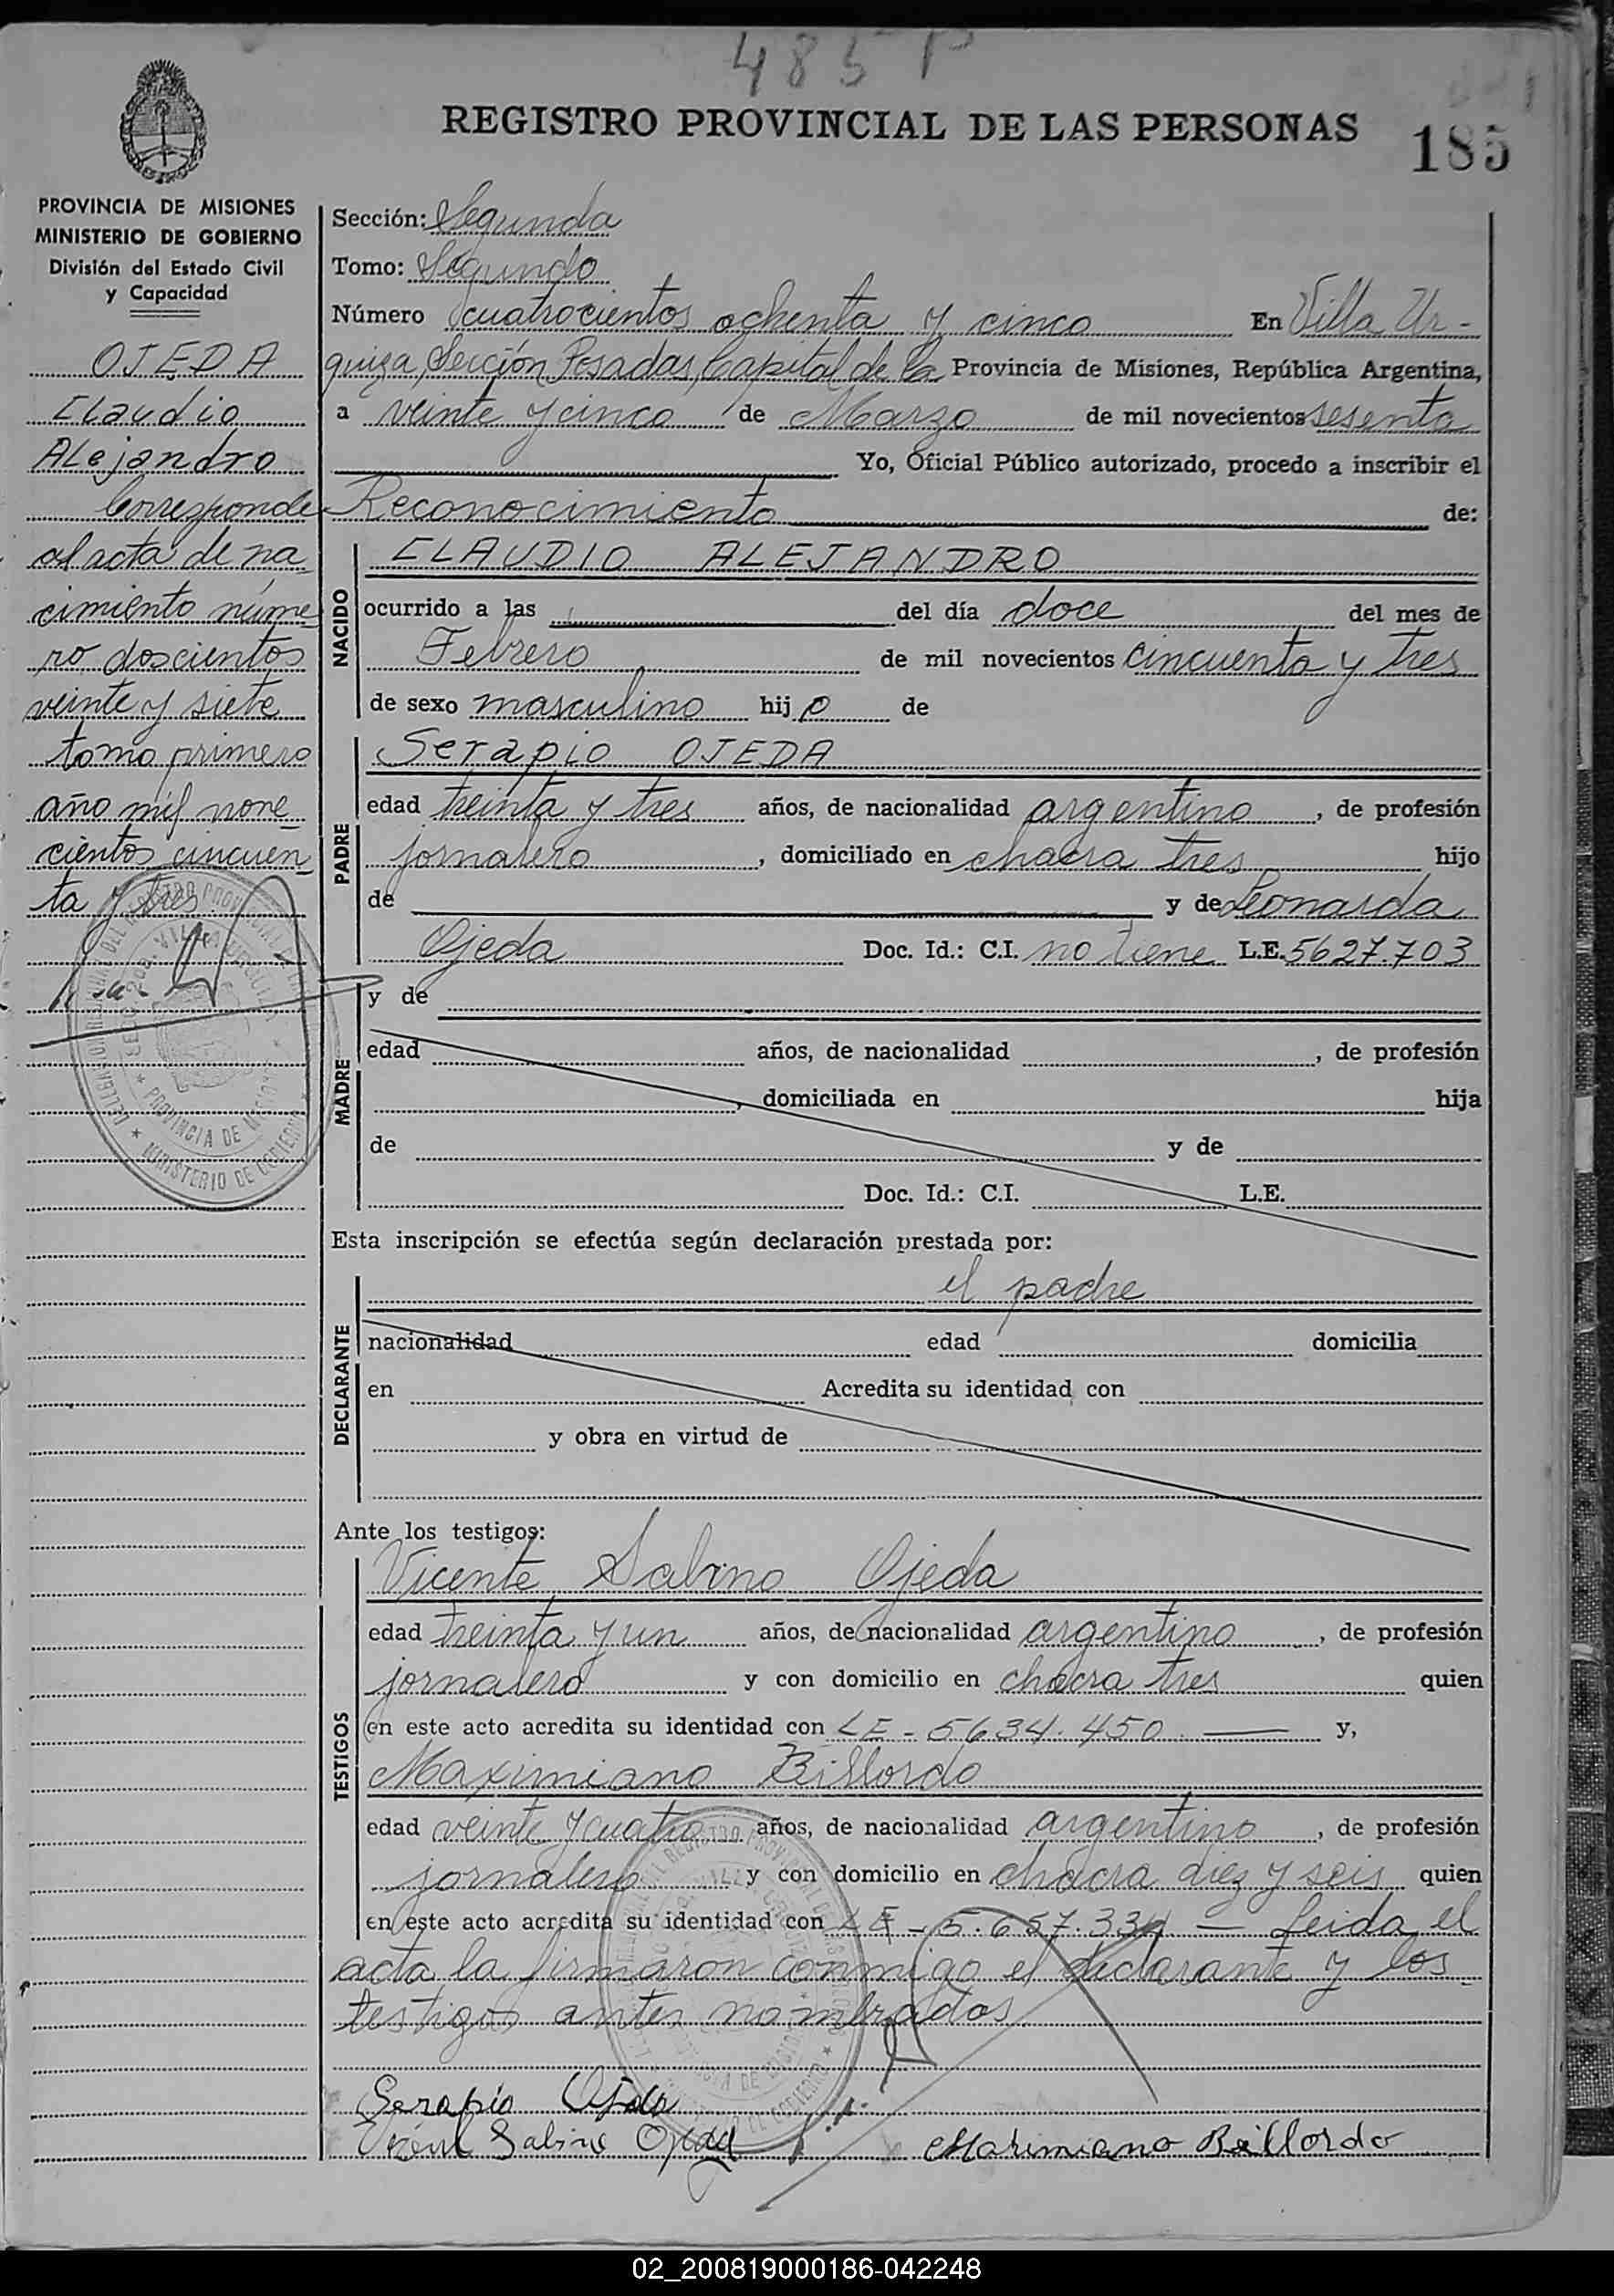 485 P
REGISTRO PROVINCIAL DE LAS PERSONAS
185
PROVINCIA DE MISIONES
MINISTERIO DE GOBIERNO
División del Estado Civil
y Capacidad
OJEDA
Claudio
Alejandro
Corresponde
al acta de na-
cimiento núme
ro doscientos
veinte y siete
tomo primero
año mil nove-
cientos cincuen
ta y tres
Sección: Segunda
Tomo: Segundo
Número cuatrocientos ochenta y cinco En Villa Ur-
quiza, Sección Posadas, Capital de la Provincia de Misiones, República Argentina,
a veinte y cinco de Marzo de mil novecientos sesenta
Yo, Oficial Público autorizado, procedo a inscribir el
Reconocimiento de:
NACIDO
CLAUDIO ALEJANDRO
ocurrido a las del día doce del mes de
Febrero de mil novecientos cincuenta y tres
de sexo masculino hijo de
PADRE
Serapio OJEDA
edad treinta y tres años, de nacionalidad argentino, de profesión
jornalero, domiciliado en chacra tres hijo
de y de Leonarda
Ojeda Doc. Id.: C.I. no tiene L.E. 5627.703
MADRE
y de
edad años, de nacionalidad , de profesión
, domiciliada en hija
de y de
Doc. Id.: C.I. L.E.
Esta inscripción se efectúa según declaración prestada por:
DECLARANTE
el padre
nacionalidad edad domicilia
en Acredita su identidad con
y obra en virtud de
Ante los testigos:
TESTIGOS
Vicente Sabino Ojeda
edad treinta y un años, de nacionalidad argentino, de profesión
jornalero y con domicilio en chacra tres quien
en este acto acredita su identidad con LE - 5634.450 y,
Maximiano Billordo
edad veinte y cuatro años, de nacionalidad argentino, de profesión
jornalero y con domicilio en chacra diez y seis quien
en este acto acredita su identidad con LE - 5.657.334 — Leida el
acta la firmaron conmigo el declarante y los
testigos antes nombrados
Serapio Ojeda
Sabino Ojeda Maximiano Billordo
PROVINCIA DE MISIONES
MINISTERIO DE GOBIERNO
02_200819000186-042248